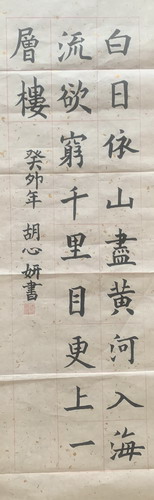 白日依山盡黄河入海
流欲窮千里目更上一
層樓
癸卯年 胡心妍書